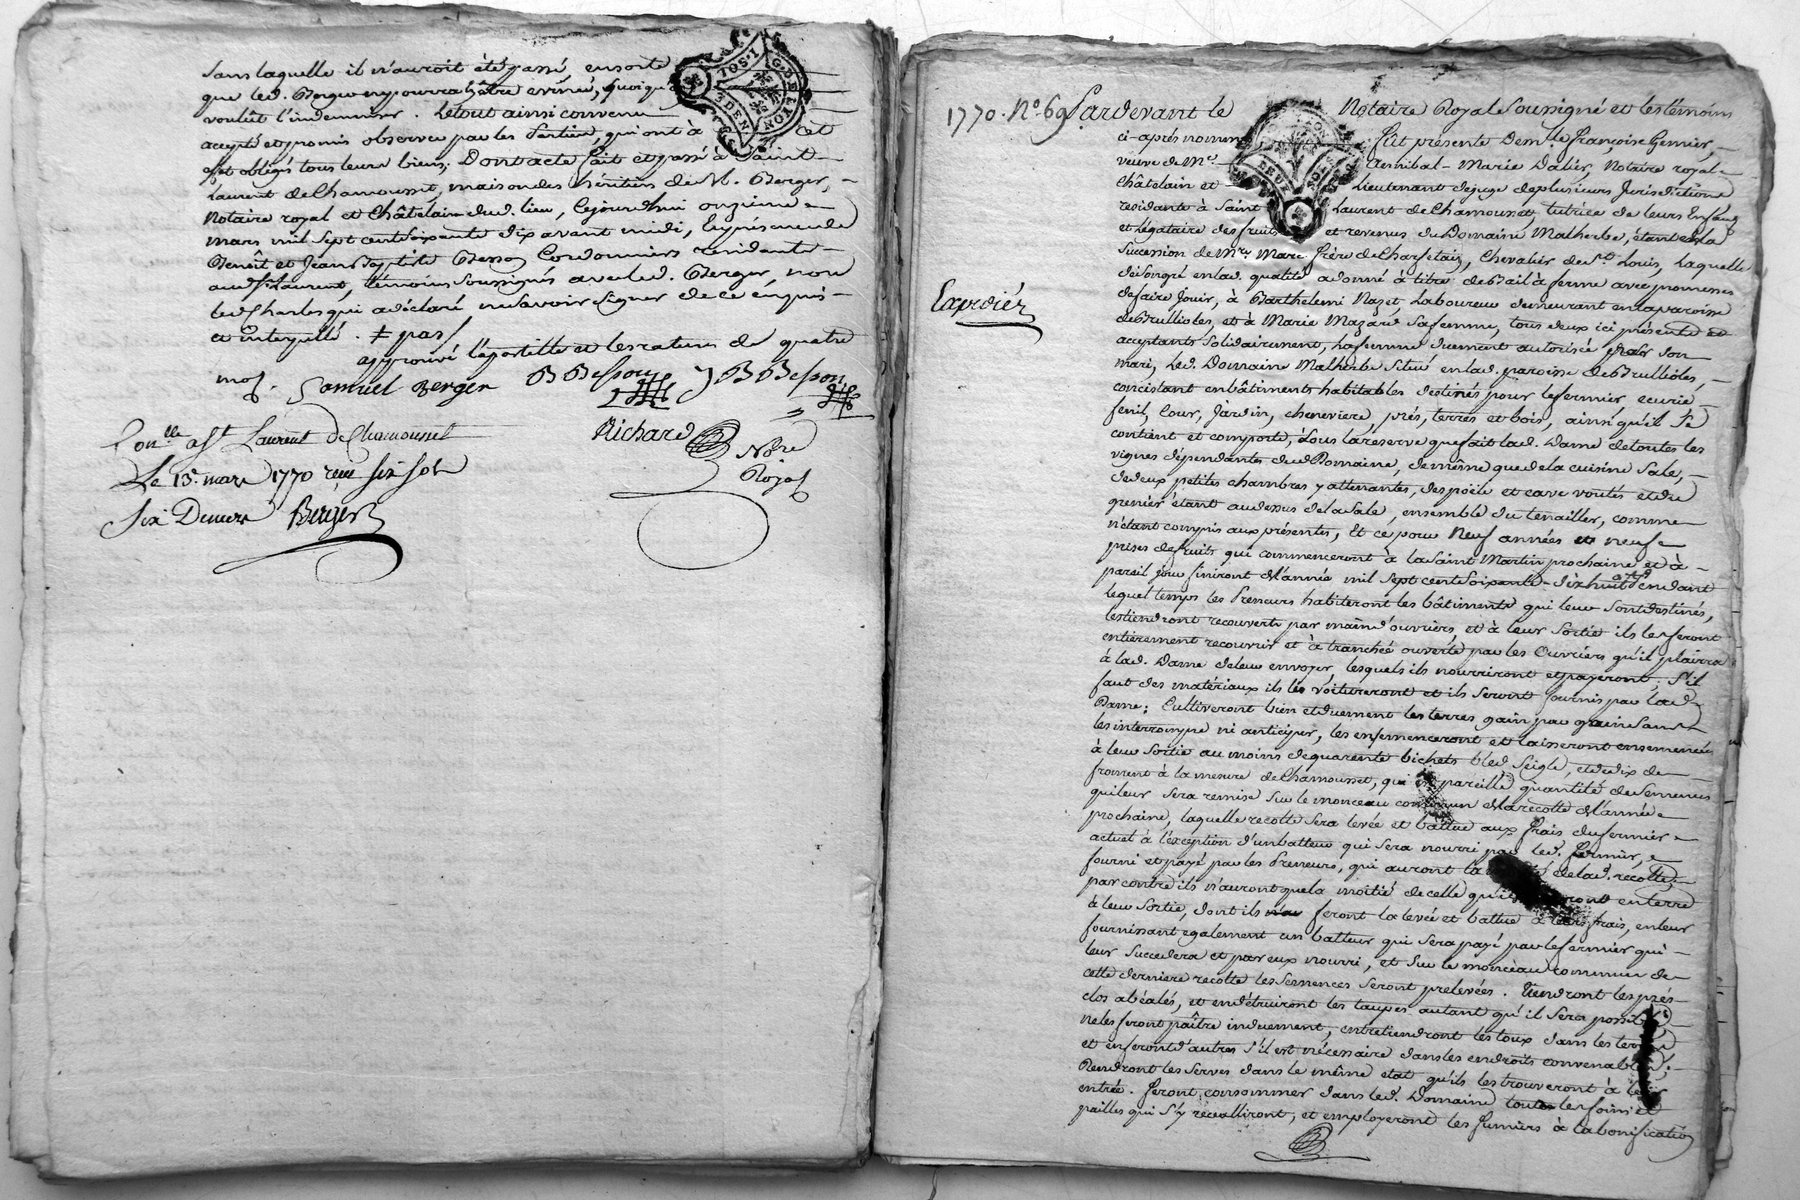 sans laquelle il n'auroit été passé, ensorte
que led. Berger n'y pourra être évincé, quoiqu'il
voulût l'indemniser. Le tout ainsi convenu
accepté et promis observer par les Parties, qui ont à cet
effet obligés tous leurs biens; Dont acte fait et passé à Saint
Laurent de Chamousset, maison des héritiers de M. Berger,
Notaire royal et Châtelain dud. lieu, cejourd'hui onzieme
mars mil sept cent soixante dix avant midi, en présence de
Benoît et Jean Baptiste Besson Cordonniers résidants
aud. St. Laurent, témoins soussignés avec led. Berger, non
led. Charles qui a déclaré ne savoir signer de ce enquis
et interpellé. ‡ pas/
approuvé l'apostille et les ratures de quatre
mos. Samuel Berger B Besson J B Besson
Richard Nore
Royal
Con.lle a St Laurent de Chamousset
Le 15. mars 1770 reçu six sols
six Deniers Berger
GDELION
1770. No. 69 Pardevant le Notaire Royal Soussigné et les témoins
ci-après nommés fut présente Dem.lle Françoise Genier,
veuve de Mr. Annibal-Marie Dalier, Notaire royal
Châtelain et Lieutenant de juge de plusieurs Jurisdictions
residante à Saint Laurent de Chamousset tutrice de leurs Enfans
et légataire des fruits et revenus du Domaine Malherbe, étant de la
Succession de Mre. Marc frère de Charsetain, Chevalier de St. Louis, Laquelle
de son gré en lad. qualité a donné à titre de Bail à ferme avec promesses
Expédiéz
de faire Jouir, à Barthelemi Nazet Laboureur demeurant en la paroisse
de Brullioles, et à Marie Mazard sa femme, tous deux ici présents et
acceptants solidairement, la femme duement autorisée par son
mari, Led. Domaine Malherbe Situé en lad. paroisse de Brullioles,
concistant en bâtiments habitables destinés pour le fermier ecurie
fenil, Cour, jardin, cheneviere, prés, terres et bois, ainsi qu'il se
contient et comporte, sous la reserve que fait lad. Dame de toutes les
vignes dépendantes dud Domaine, de même que de la cuisine Sale,
de deux petites chambres y attenantes, des poële et cave voutés et du
grenier étant au dessus de la Sale, ensemble du tenailler, comme
n'étant compris aux présentes, Et ce pour Neuf années et neuf
prises de fruits qui commenceront à la Saint Martin prochaine et à
pareil jour finiront de l'année mil sept cent Soixante-dix huit pendant
lequel temps les Preneurs habiteront les bâtiments qui leur sont destinés,
les tiendront recouverts par main d'ouvriers, et à leur Sortie ils les feront
entièrement recouvrir et à tranchée ouverte par les Ouvriers qu'il plaira
à lad. Dame de leur envoyer, lesquels ils nourriront et payeront; s'il
faut des matériaux ils les voitureront et ils seront fournis par lad.
Dame; Cultiveront bien et duement les terres gain par gain sans
les interrompre ni anticiper, les ensemenceront et laisseront ensemencés
à leur Sortie au moins de quarente bichets bled Seigle, et de dix de
froment à la mesure de Chamousset, qui est pareille quantité de Semences
qui leur sera remise sur le monceau commun de la récolte de l'année
prochaine, laquelle recolte sera levée et battue aux frais du fermier
actuel à l'exception d'un batteur qui sera nourri par led. fermier, et
fourni et payé par les Preneurs, qui auront la de lad. recolte,
par contre ils n'auront que la moitié de celle qu'ils en terre
à leur Sortie, dont ils feront la levée et battue à leurs frais, en leur
fournissant également un batteur qui sera payé par le fermier qui
leur Succedera et par eux nourri, et sur le monceau commun de
cette derniere récolte les Semences seront prelevées. Tiendront les prés
clos abéalés, et en détruiront les taupes autant qu'il sera possible,
ne les feront paître induement, entretiendront les toux dans les terres
et en feront d'autres s'il est nécessaire dans les endroits convenables;
Rendront les Serves dans le même etat qu'ils les trouveront à leur
entrée. Feront consommer dans led. Domaine toutes les foins et
pailles qui s'y recueilliront, et employeront les fumiers à la bonification